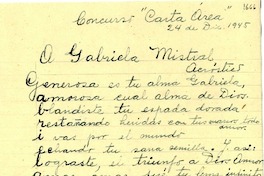 1666
Concurso "Carta Aérea"
24 de Dic. 1945
A Gabriela Mistral
Acróstico
Generosa es tu alma Gabriela,
amorosa cual alma de Dios.
blandiste tu espada dorada!
restañando heridas con tus manos todo
amor.
i vas por el mundo
echando tu sana semilla. Y así
lograste, su triunfo a Dios Amor